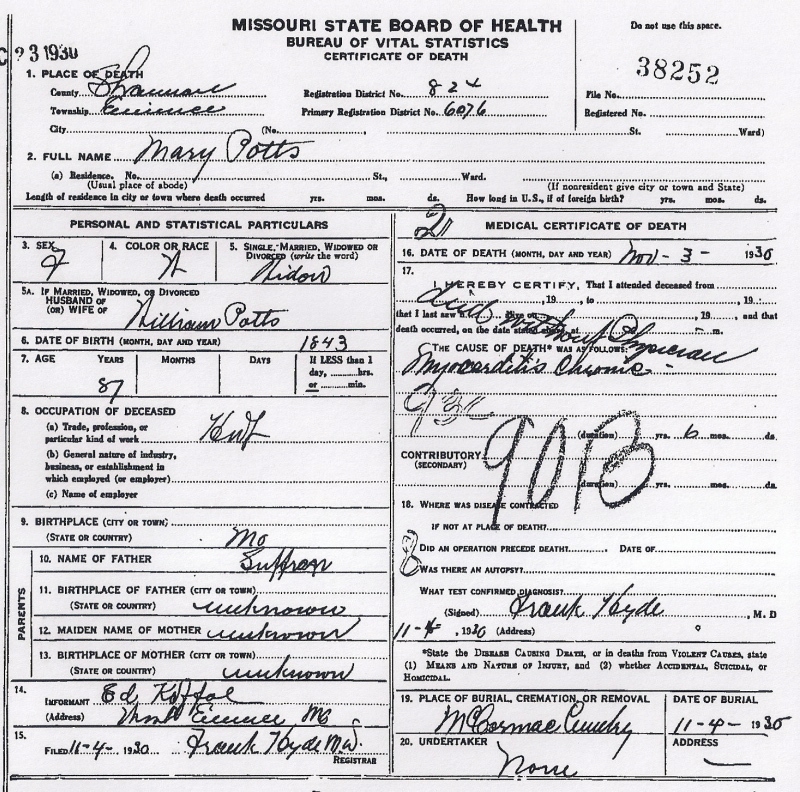 MISSOURI STATE BOARD OF HEALTH
BUREAU OF VITAL STATISTICS
CERTIFICATE OF DEATH
Do not use this space.
C 23 1930
38252
1. PLACE OF DEATH
County Shannon Registration District No. 824 File No.
Township Eminence Primary Registration District No. 6076 Registered No.
City (No. , St. Ward)
2. FULL NAME Mary Potts
(a) Residence. No. St., Ward.
(Usual place of abode) (If nonresident give city or town and State)
Length of residence in city or town where death occurred yrs. mos. ds. How long in U.S., if of foreign birth? yrs. mos. ds.
PERSONAL AND STATISTICAL PARTICULARS
3. SEX F
4. COLOR OR RACE W
5. SINGLE, MARRIED, WIDOWED OR DIVORCED (write the word)
Widow
5A. IF MARRIED, WIDOWED, OR DIVORCED
HUSBAND OF
(OR) WIFE OF William Potts
6. DATE OF BIRTH (MONTH, DAY AND YEAR) 1843
7. AGE YEARS MONTHS DAYS If LESS than 1
day, hrs.
or min.
87
8. OCCUPATION OF DECEASED
(a) Trade, profession, or
particular kind of work Hwf
(b) General nature of industry,
business, or establishment in
which employed (or employer)
(c) Name of employer
9. BIRTHPLACE (CITY OR TOWN)
(STATE OR COUNTRY) Mo
PARENTS
10. NAME OF FATHER
11. BIRTHPLACE OF FATHER (CITY OR TOWN)
(STATE OR COUNTRY) unknown
12. MAIDEN NAME OF MOTHER unknown
13. BIRTHPLACE OF MOTHER (CITY OR TOWN)
(STATE OR COUNTRY) unknown
14.
INFORMANT Ed
(Address) Eminence Mo
15.
FILED 11-4-, 1930 Frank Hyde M.D.
REGISTRAR
21
MEDICAL CERTIFICATE OF DEATH
16. DATE OF DEATH (MONTH, DAY AND YEAR) Nov-3- 1930
17.
I HEREBY CERTIFY, That I attended deceased from
, 19 , to , 19
that I last saw h alive on , 19 and that
death occurred, on the date stated above, at m.
died without Physician
THE CAUSE OF DEATH* WAS AS FOLLOWS:
Myocarditis Chronic
(duration) yrs. 6 mos. ds.
90B
CONTRIBUTORY
(SECONDARY)
(duration) yrs. mos. ds.
18. WHERE WAS DISEASE CONTRACTED
IF NOT AT PLACE OF DEATH?
DID AN OPERATION PRECEDE DEATH? DATE OF
WAS THERE AN AUTOPSY?
WHAT TEST CONFIRMED DIAGNOSIS?
(Signed) Frank Hyde, M.D
11-4, 1930 (Address)
*State the DISEASE CAUSING DEATH, or in deaths from VIOLENT CAUSES, state
(1) MEANS AND NATURE OF INJURY, and (2) whether ACCIDENTAL, SUICIDAL, or
HOMICIDAL.
19. PLACE OF BURIAL, CREMATION, OR REMOVAL DATE OF BURIAL
McCormac Cemetry 11-4- 1930
20. UNDERTAKER ADDRESS
None —